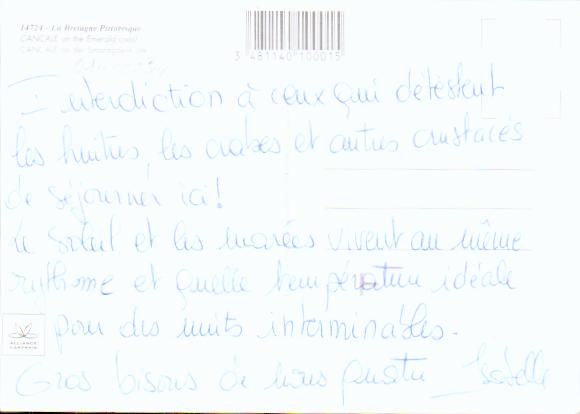 14724 - La Bretagne Pittoresque
CANCALE on the Emerald coast
CANCALE an der Smaragdenküste
3 481140 100015
Interdiction à ceux qui détestent
les huitres, les crabes et autres crustacés
de séjourner ici!
Le Soleil et les marées vivent au même
rythme et quelle température idéale
pour des nuits interminables.
Gros bisous de nous Isabelle
ALLIANCE